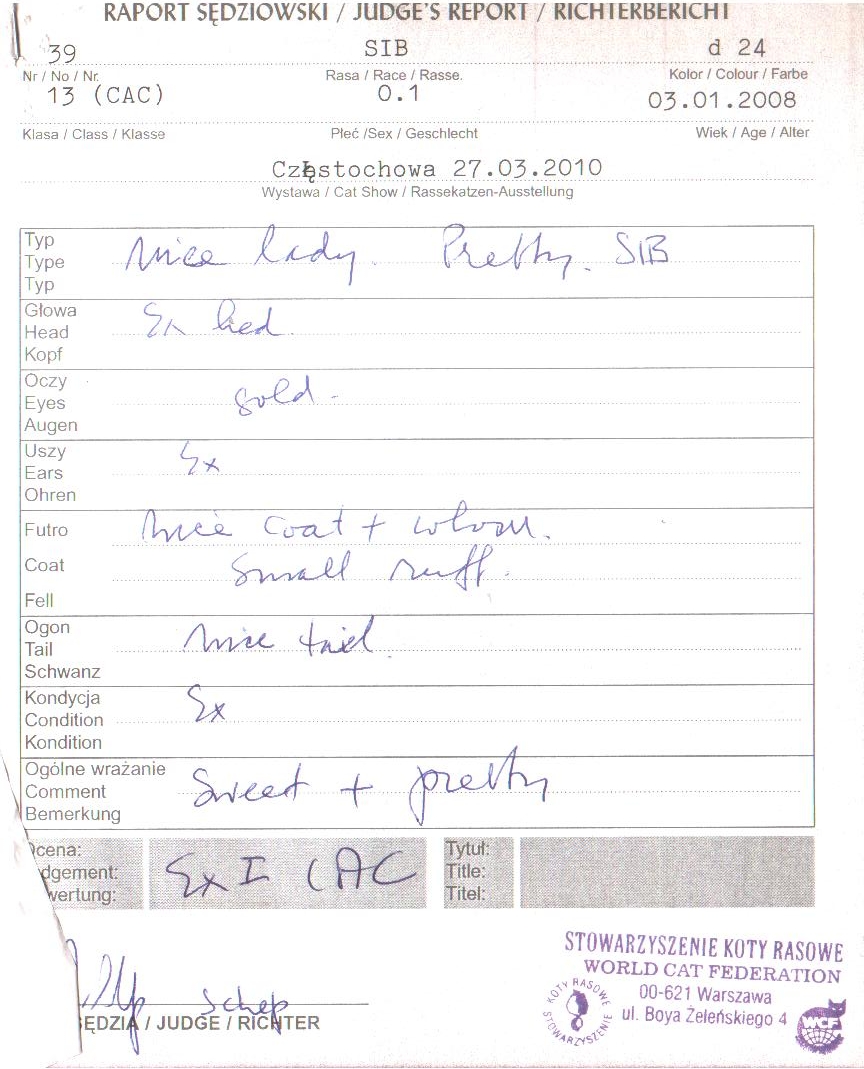 RAPORT SĘDZIOWSKI / JUDGE'S REPORT / RICHTERBERICHT
39 SIB d 24
Nr / No / Nr. Rasa / Race / Rasse. Kolor / Colour / Farbe
13 (CAC) 0.1 03.01.2008
Klasa / Class / Klasse Płeć /Sex / Geschlecht Wiek / Age / Alter
Częstochowa 27.03.2010
Wystawa / Cat Show / Rassekatzen-Ausstellung
Typ
Type nice lady. Pretty. SIB
Typ
Głowa
Head Ex hed
Kopf
Oczy
Eyes gold.
Augen
Uszy Ex
Ears
Ohren
Futro nice coat + colour.
Coat small ruff.
Fell
Ogon
Tail nice tail
Schwanz
Kondycja
Condition Ex
Kondition
Ogólne wrażanie
Comment Sweet + pretty
Bemerkung
Ocena: Tytuł:
dgement: Ex I CAC Title:
wertung: Titel:
Schep
SĘDZIA / JUDGE / RICHTER
STOWARZYSZENIE KOTY RASOWE
WORLD CAT FEDERATION
00-621 Warszawa
ul. Boya Żeleńskiego 4
KOTY RASOWE
STOWARZYSZENIE
WCF